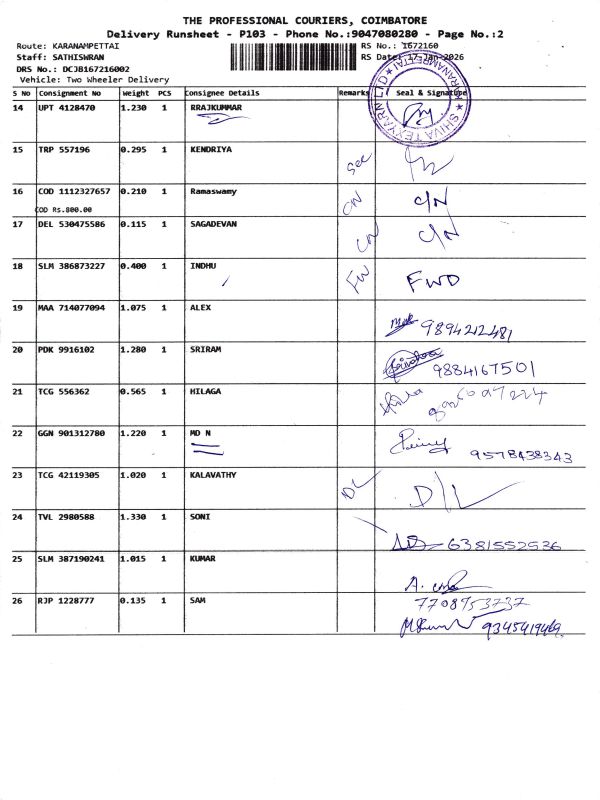 THE PROFESSIONAL COURIERS, COIMBATORE
Delivery Runsheet - P103 - Phone No.:9047080280 - Page No.:2
Route: KARANAMPETTAI RS No.: 1672160
Staff: SATHISWRAN RS Date: 17-Jan-2026
DRS No.: DCJB167216002
Vehicle: Two Wheeler Delivery
S No Consignment No Weight PCS Consignee Details Remarks Seal & Signature
SHIVA TEXYARN LTD KARANAMPETTAI
14 UPT 4128470 1.230 1 RRAJKUMMAR
15 TRP 557196 0.295 1 KENDRIYA
16 COD 1112327657 0.210 1 Ramaswamy CN C/N
COD Rs.800.00
17 DEL 530475586 0.115 1 SAGADEVAN CN C/N
18 SLM 386873227 0.400 1 INDHU FW FWD
19 MAA 714077094 1.075 1 ALEX
9894212481
20 PDK 9916102 1.280 1 SRIRAM
9884167501
21 TCG 556362 0.565 1 HILAGA
22 GGN 901312780 1.220 1 MD N
9578438343
23 TCG 42119305 1.020 1 KALAVATHY DL D/L
24 TVL 2980588 1.330 1 SONI
6381552536
25 SLM 387190241 1.015 1 KUMAR
26 RJP 1228777 0.135 1 SAM 7708953737
9345419469